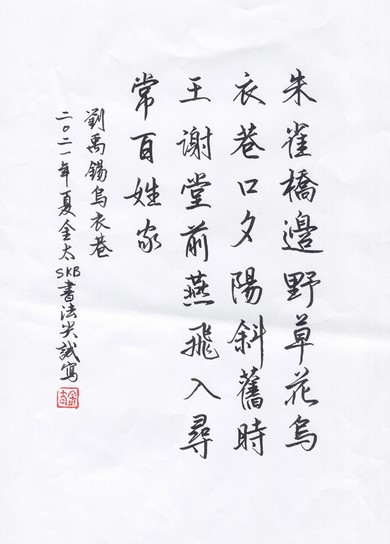 朱雀橋邊野草花烏
衣巷口夕陽斜舊時
王謝堂前燕飛入尋
常百姓家
劉禹錫烏衣巷
二〇二一年夏金太SKB書法尖誠寫